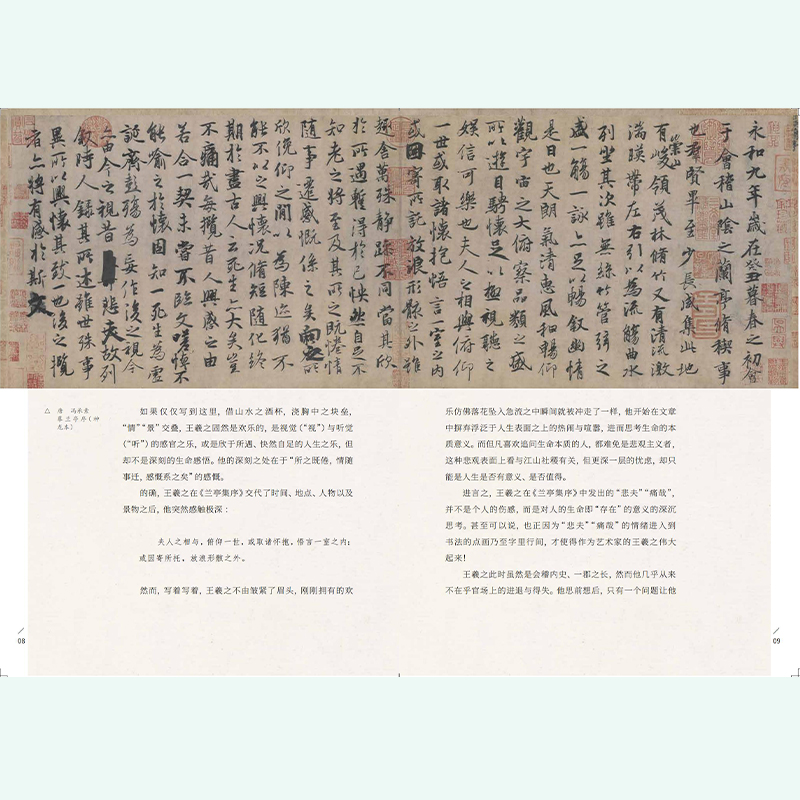 永和九年歲在癸丑暮春之初會
于會稽山陰之蘭亭脩稧事
也羣賢畢至少長咸集此地
有崇山峻領茂林脩竹又有清流激
湍暎帶左右引以為流觴曲水
列坐其次雖無絲竹管弦之
盛一觴一詠亦足以暢敘幽情
是日也天朗氣清惠風和暢仰
觀宇宙之大俯察品類之盛
所以遊目騁懷足以極視聽之
娛信可樂也夫人之相與俯仰
一世或取諸懷抱悟言一室之內
或因寄所託放浪形骸之外雖
趣舍萬殊靜躁不同當其欣
於所遇暫得於己怏然自足不
知老之將至及其所之既惓情
隨事遷感慨係之矣向之所
欣俛仰之閒以為陳迹猶不
能不以之興懷況脩短隨化終
期於盡古人云死生亦大矣豈
不痛哉每攬昔人興感之由
若合一契未嘗不臨文嗟悼不
能喻之於懷固知一死生為虛
誕齊彭殤為妄作後之視今
亦由今之視昔悲夫故列
敘時人錄其所述雖世殊事
異所以興懷其致一也後之攬
者亦將有感於斯文
△ 唐 冯承素
摹兰亭序（神
龙本）
如果仅仅写到这里，借山水之酒杯，浇胸中之块垒，
“情”“景”交叠，王羲之固然是欢乐的，是视觉（“视”）与听觉
（“听”）的感官之乐，或是欣于所遇、快然自足的人生之乐，但
却不是深刻的生命感悟。他的深刻之处在于“所之既倦，情随
事迁，感慨系之矣”的感慨。
的确，王羲之在《兰亭集序》交代了时间、地点、人物以及
景物之后，他突然感触极深：
夫人之相与，俯仰一世，或取诸怀抱，悟言一室之内；
或因寄所托，放浪形骸之外。
然而，写着写着，王羲之不由皱紧了眉头，刚刚拥有的欢
08
乐仿佛落花坠入急流之中瞬间就被冲走了一样，他开始在文章
中摒弃浮泛于人生表面之上的热闹与喧嚣，进而思考生命的本
质意义。而但凡喜欢追问生命本质的人，都难免是悲观主义者，
这种悲观表面上看与江山社稷有关，但更深一层的忧虑，却只
能是人生是否有意义、是否值得。
进言之，王羲之在《兰亭集序》中发出的“悲夫”“痛哉”，
并不是个人的伤感，而是对人的生命即“存在”的意义的深沉
思考。甚至可以说，也正因为“悲夫”“痛哉”的情绪进入到
书法的点画乃至字里行间，才使得作为艺术家的王羲之伟大
起来！
王羲之此时虽然是会稽内史、一郡之长，然而他几乎从来
不在乎官场上的进退与得失。他思前想后，只有一个问题让他
09